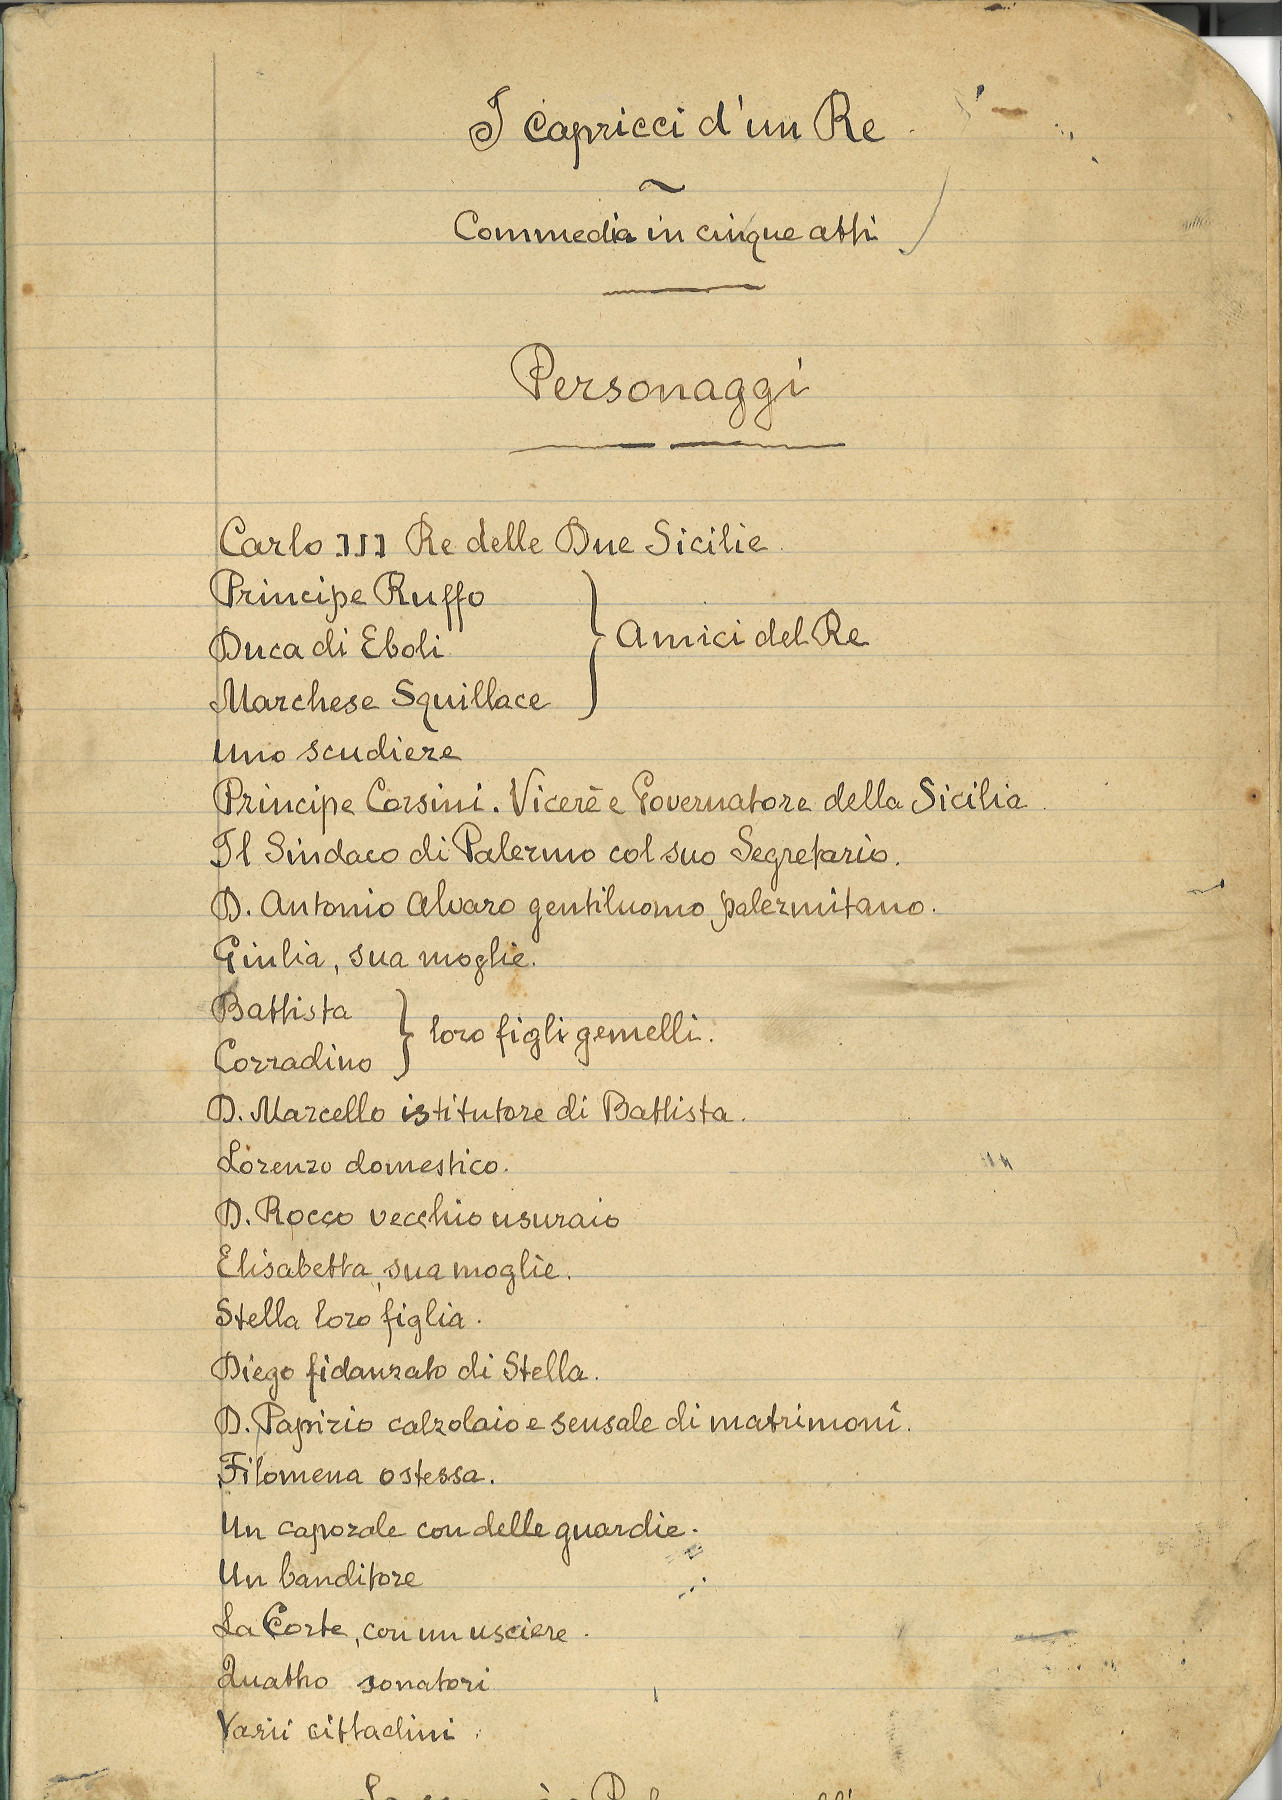 I capricci d'un Re
Commedia in cinque atti
Personaggi
Carlo III Re delle Due Sicilie.
Principe Ruffo
Duca di Eboli
Amici del Re
Marchese Squillace
Uno scudiere
Principe Corsini. Vicerè e Governatore della Sicilia.
Il Sindaco di Palermo col suo Segretario.
D. Antonio Alvaro gentiluomo palermitano.
Giulia, sua moglie.
Battista
loro figli gemelli.
Corradino
D. Marcello istitutore di Battista.
Lorenzo domestico.
D. Rocco vecchio usuraio
Elisabetta, sua moglie.
Stella loro figlia.
Diego fidanzato di Stella.
D. Papirio calzolaio e sensale di matrimonî.
Filomena ostessa.
Un caporale con delle guardie.
Un banditore
La Corte, con un usciere.
Quattro sonatori
Varii cittadini.